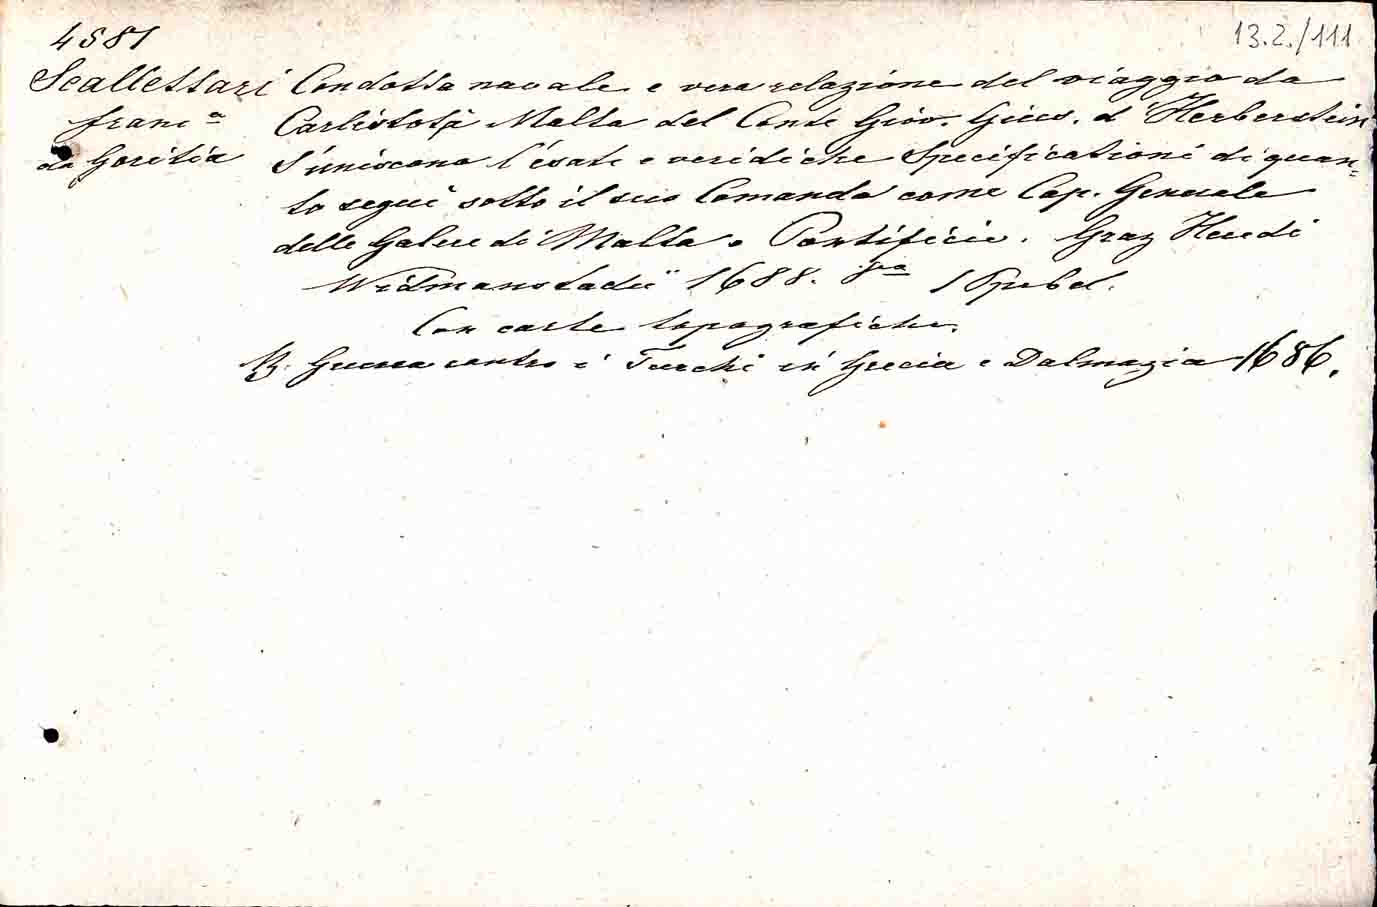 4581
13.2./111
Scallettari Condotta navale e vera relazione del viaggio da
franc.ª Carlistot à Malta del Conte Giov. Gius. d'Herberstein
da Goritia S'uniscono l'esate e veridiche Specificationi di quan=
to seguì sotto il suo Comando come Cap. Generale
delle Galere di Malta e Pontificie. Graz Heredi
Widmanstadii 1688. I Publ.
Con carte topografiche.
Guerra contro i Turchi in Grecia e Dalmazia 1686.